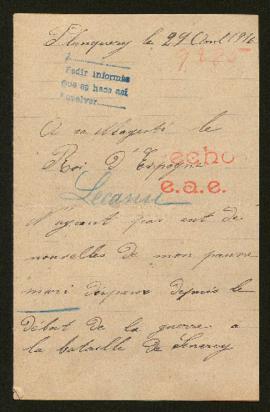 le 27 Avril 1916
Pedir informes
que se hace así
A sa Majesté le
Roi d'Espagne
echo
e.a.e.
N'ayant pas eut de
nouvelles de mon pauvre
mari disparu depuis le
début de la guerre a
la bataille de